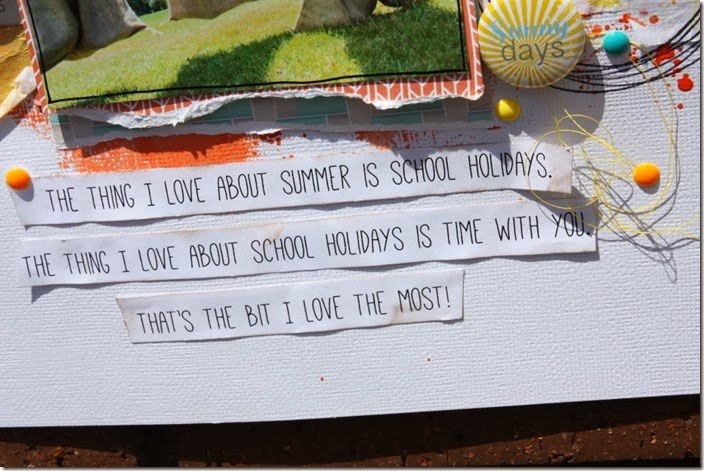 Sunny
days
THE THING I LOVE ABOUT SUMMER IS SCHOOL HOLIDAYS.
THE THING I LOVE ABOUT SCHOOL HOLIDAYS IS TIME WITH YOU.
THAT'S THE BIT I LOVE THE MOST!